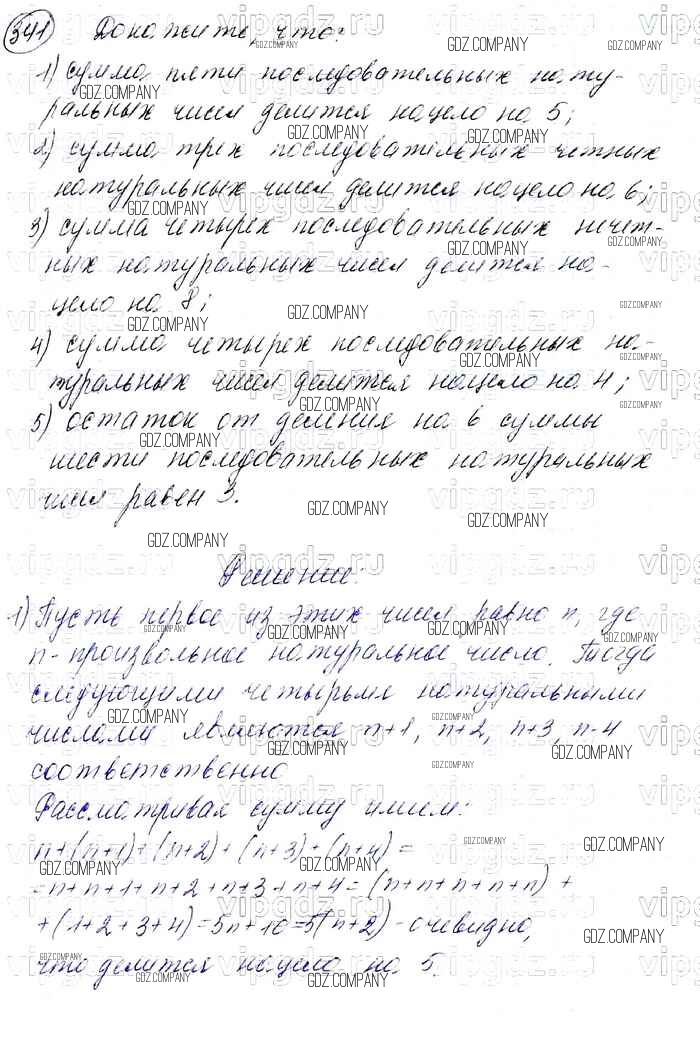 341 Докажите, что:
1) сумма пяти последовательных нату-
ральных чисел делится нацело на 5;
2) сумма трех последовательных четных
натуральных чисел делится нацело на 6;
3) сумма четырех последовательных нечет-
ных натуральных чисел делится на-
цело на 8;
4) сумма четырех последовательных на-
туральных чисел делится нацело на 4;
5) остаток от деления на 6 суммы
шести последовательных натуральных
чисел равен 3.
Решение:
1) Пусть первое из этих чисел равно n, где
n - произвольное натуральное число. Тогда
следующими четырьмя натуральными
числами являются n+1, n+2, n+3, n-4
соответственно
Рассматривая сумму имеем:
n+(n+1)+(n+2)+(n+3)+(n+4)=
=n+n+1+n+2+n+3+n+4=(n+n+n+n+n)+
+(1+2+3+4)=5n+10=5(n+2) - очевидно,
что делится нацело на 5.